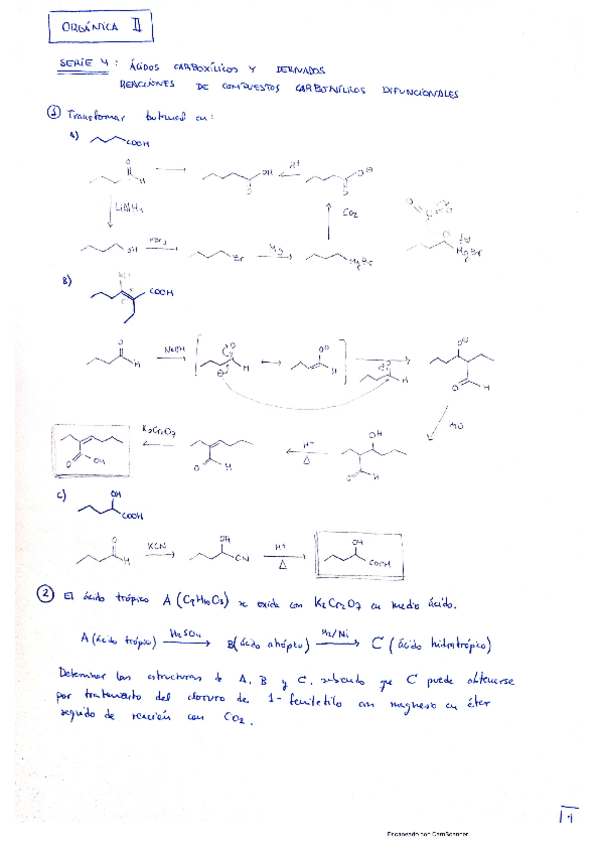 ORGÁNICA II
SERIE 4: ÁCIDOS CARBOXÍLICOS Y DERIVADOS
REACCIONES DE COMPUESTOS CARBOXÍLICOS DIFUNCIONALES
① Transformar butanal en:
A) COOH
O
H
OH
O
H+
O⊖
O
LiAlH4
CO2
OH
PBr3
Br
Mg
MgBr
MgBr
B)
COOH
O
H
NaOH
O
H
O⊖
H
O
H
O⊖
O
H
H2O
K2Cr2O7
O
OH
O
H
H+
Δ
OH
O
H
C) OH
COOH
O
H
KCN
OH
CN
H+
Δ
OH
COOH
② El ácido trópico A (C9H10O3) se oxida con K2Cr2O7 en medio ácido.
A (ácido trópico) H2SO4 B (ácido atrópico) H2/Ni C (ácido hidratrópico)
Determinar las estructuras de A, B y C, sabiendo que C puede obtenerse
por tratamiento del cloruro de 1-feniletilo con magnesio en éter
seguido de reacción con CO2.
1
Escaneado con CamScanner